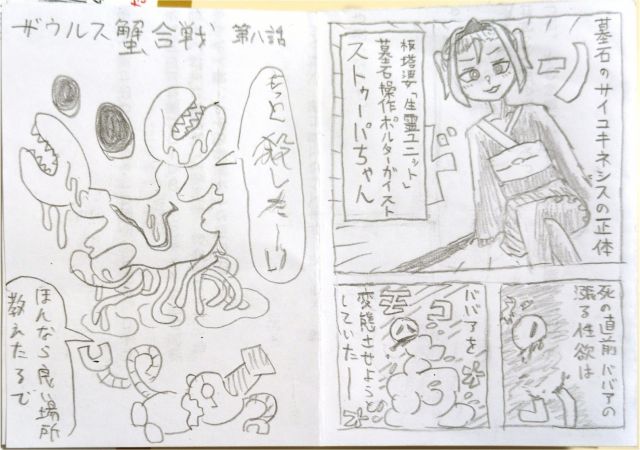 ザウルス蟹合戦 第八話
もっと殺したーい
ほんなら良い場所
教えたるで
墓石のサイコキネシスの正体
板塔婆「生霊ユニット」
墓石操作ポルターガイスト
ストゥーパちゃん
ドーン
死の直前ババアの
漲る性欲は
ババアを
変態させようと
していたー
モコ